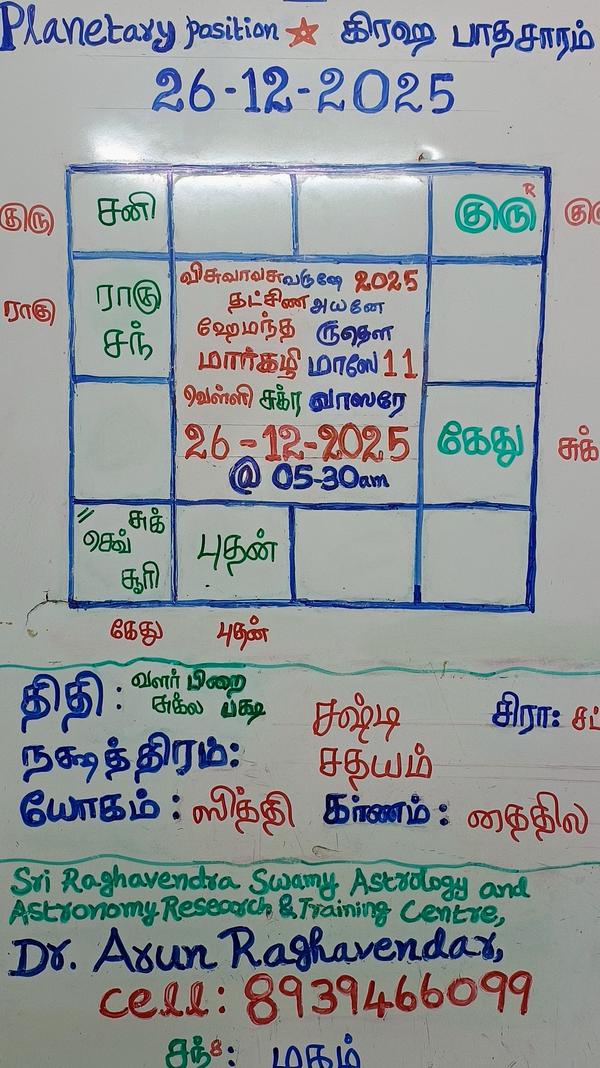 Planetary position ★ கிரஹ பாதசாரம்
26-12-2025
குரு சனி குரு R
ராகு ராகு
சந்
விசுவாவசுவருஷே 2025
தட்சிண அயனே
ஹேமந்த ருதௌ
மார்கழி மாஸே 11
வெள்ளி சுக்ர வாஸரே
26-12-2025
@ 05-30am
கேது சுக்
// சுக்
செவ்
சூரி
புதன்
கேது புதன்
திதி: வளர் பிறை
சுக்ல பக்ஷ
சஷ்டி சிரா:
நக்ஷத்திரம்: சதயம்
யோகம்: ஸித்தி கரணம்: தைதில
Sri Raghavendra Swamy Astrology and
Astronomy Research & Training Centre,
Dr. Arun Raghavendar,
cell: 8939466099
சந்8: மகம்